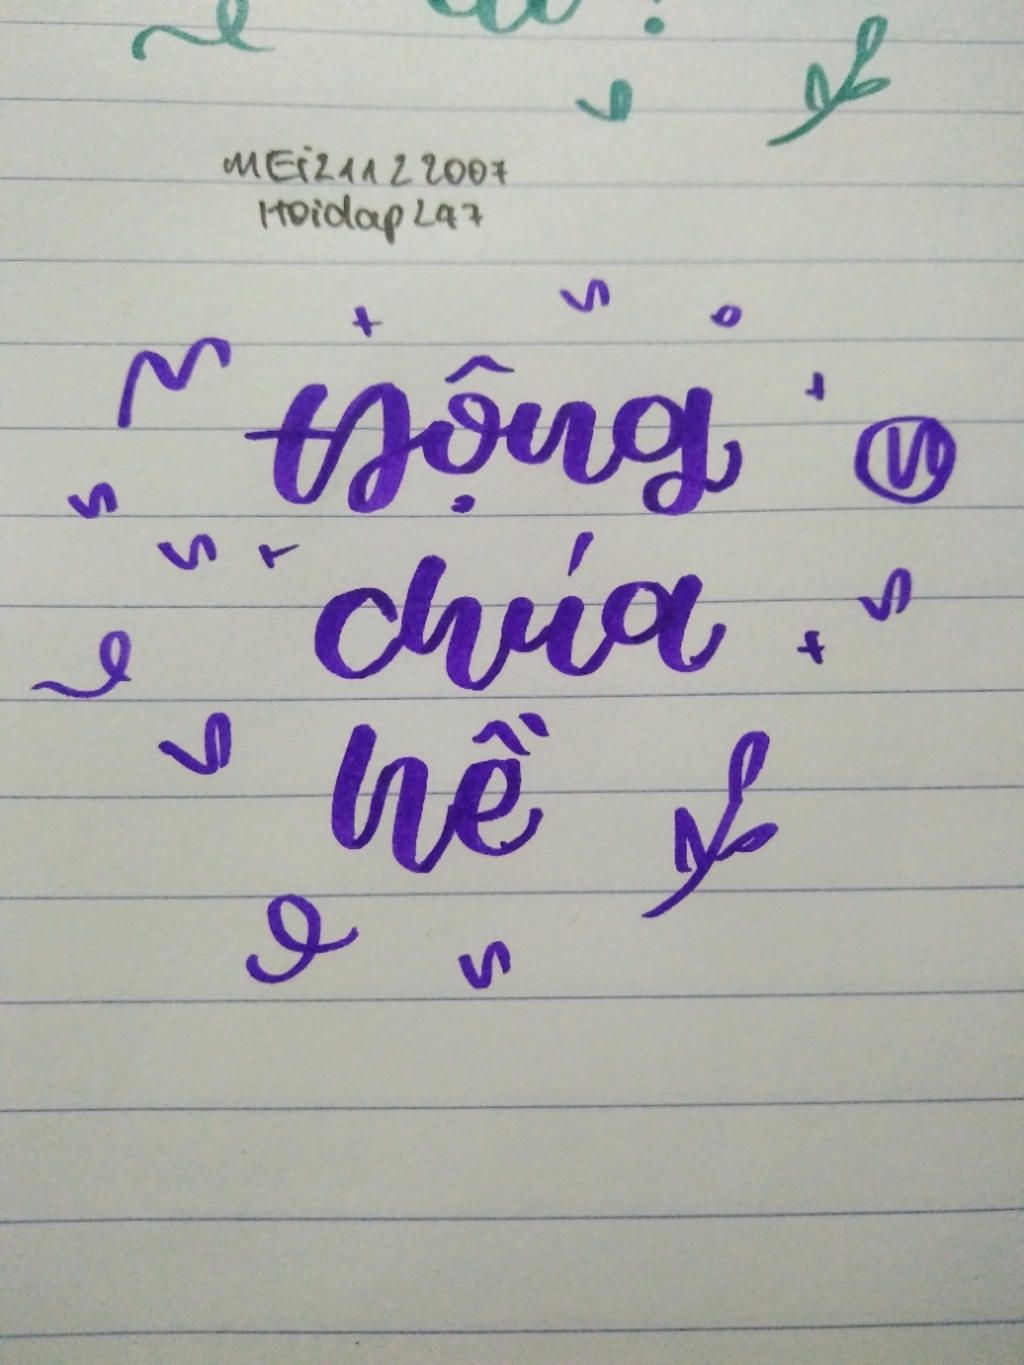 MEi21122007
Hoidap247
trộng
chúa
hề